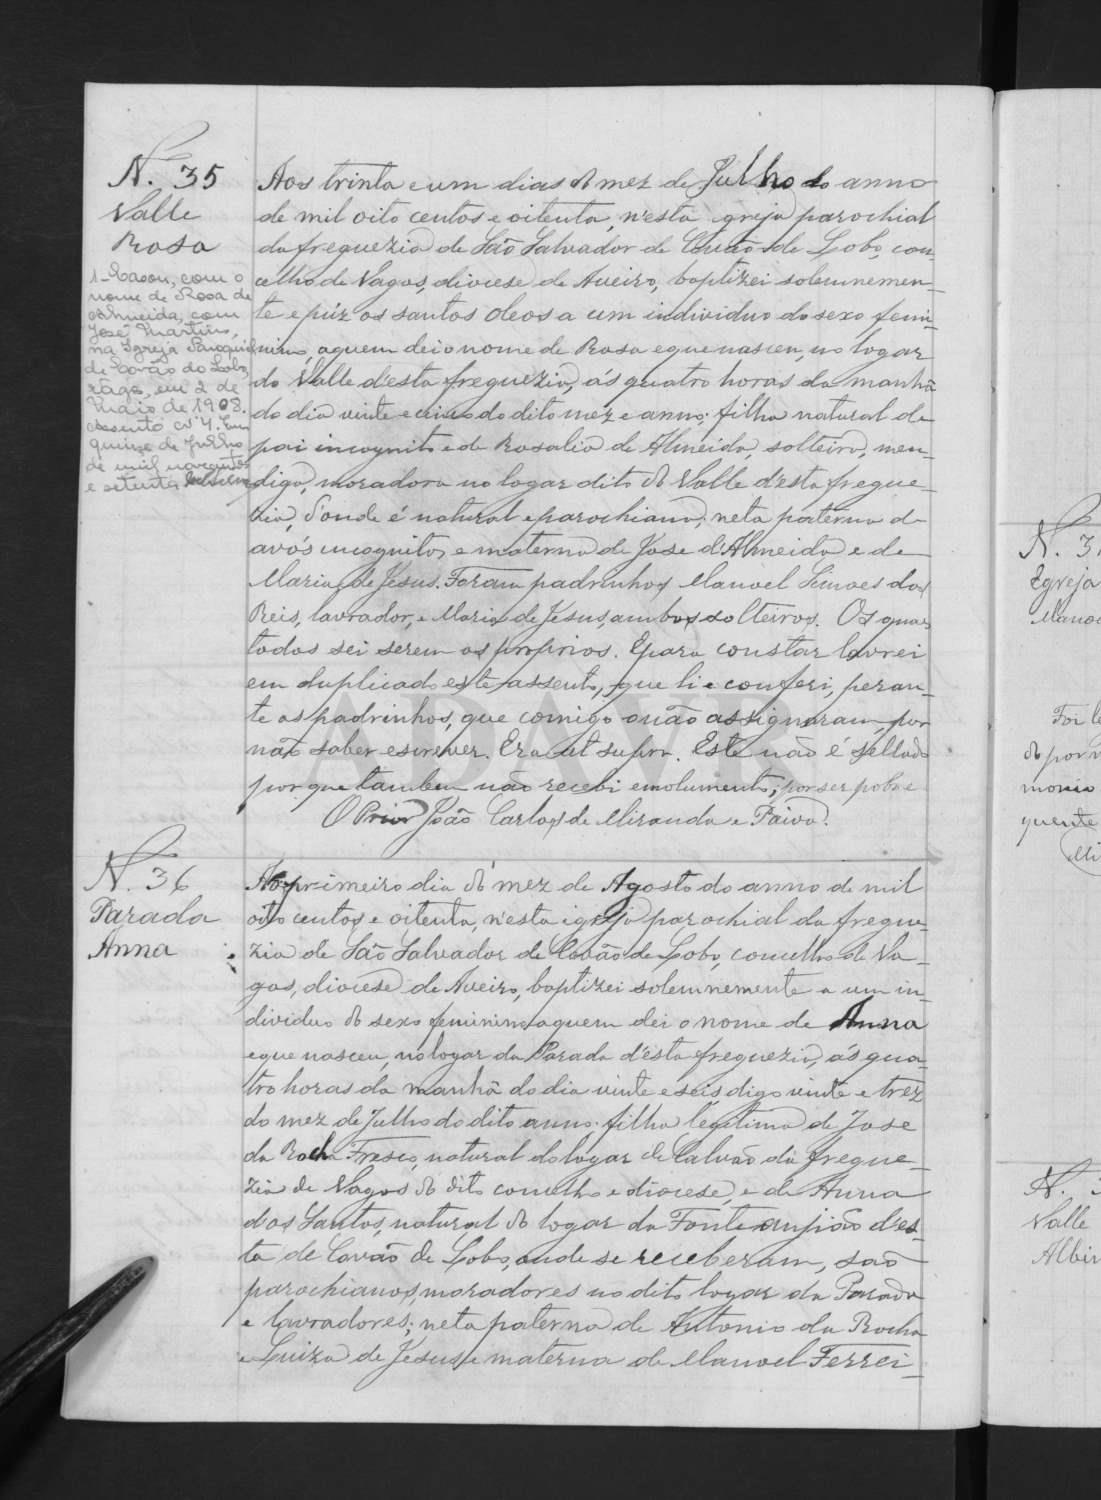 N.º 35
Valle
Rosa
1-Casou, com o
nome de Rosa de
Almeida, com
José Martins,
na Igreja Paroquial
de Covão do Lobo,
Vagos, em 2 de
Maio de 1908.
Assento nº 4. Em
quinze de Julho
de mil novecentos
e setenta
Aos trinta e um dias do mez de Julho do anno
de mil oito centos e oitenta, n'esta igreja parochial
da freguezia de São Salvador de Covão de Lobo, con-
celho de Vagos, diocese de Aveiro, baptizei solemnemen-
te e púz os santos oleos a um individuo do sexo femi-
nino, a quem dei o nome de Rosa e que nasceu, no logar
do Valle d'esta freguezia, ás quatro horas da manhã
do dia vinte e cinco do dito mez e anno; filha natural de
pai incognito e de Rosalia de Almeida, solteira, men-
diga, moradora no logar dito do Valle d'esta fregue-
zia, d'onde é natural e parochiana; neta paterna de
avós incognitos e materna de Jose d'Almeida e de
Maria de Jesus. Foram padrinhos Manoel Simoes dos
Reis, lavrador, e Maria de Jesus, ambos solteiros. Os quaes
todos sei serem os proprios. E para constar lavrei
em duplicado este assento, que li e conferi, peran-
te os padrinhos, que comigo o não assignaram, por
não saber escrever. Era ut supra. Este não é sellado
por que tambem não recebi emolumento, por ser pobre
O Prior João Carlos de Miranda e Paiva.
N.º 36
Parada
Anna
Ao primeiro dia do mez de Agosto do anno de mil
oito centos e oitenta, n'esta igreja parochial da fregue-
zia de São Salvador de Covão de Lobo, concelho de Va-
gos, diocese de Aveiro, baptizei solemnemente a um in-
dividuo do sexo feminino a quem dei o nome de Anna
e que nasceu, no logar da Parada d'esta freguezia, ás qua-
tro horas da manhã do dia vinte e seis, digo vinte e trez
do mez de Julho do dito anno; filha legitima de Jose
da Rocha Fresco, natural do logar de Calvão da fregue-
zia de Vagos do dito concelho e diocese, e de Anna
dos Santos, natural do logar da Fonte anjião d'es-
ta de Covão de Lobo, onde se receberam, são
parochianos, moradores no dito logar da Parada
e lavradores; neta paterna de Antonio da Rocha
e Luiza de Jesus, e materna de Manoel Ferrei-
ADAVR
N. 3
Igreja
Manoe
Foi le
do por
monio
quente
Mi
N. 3
Valle
Albin